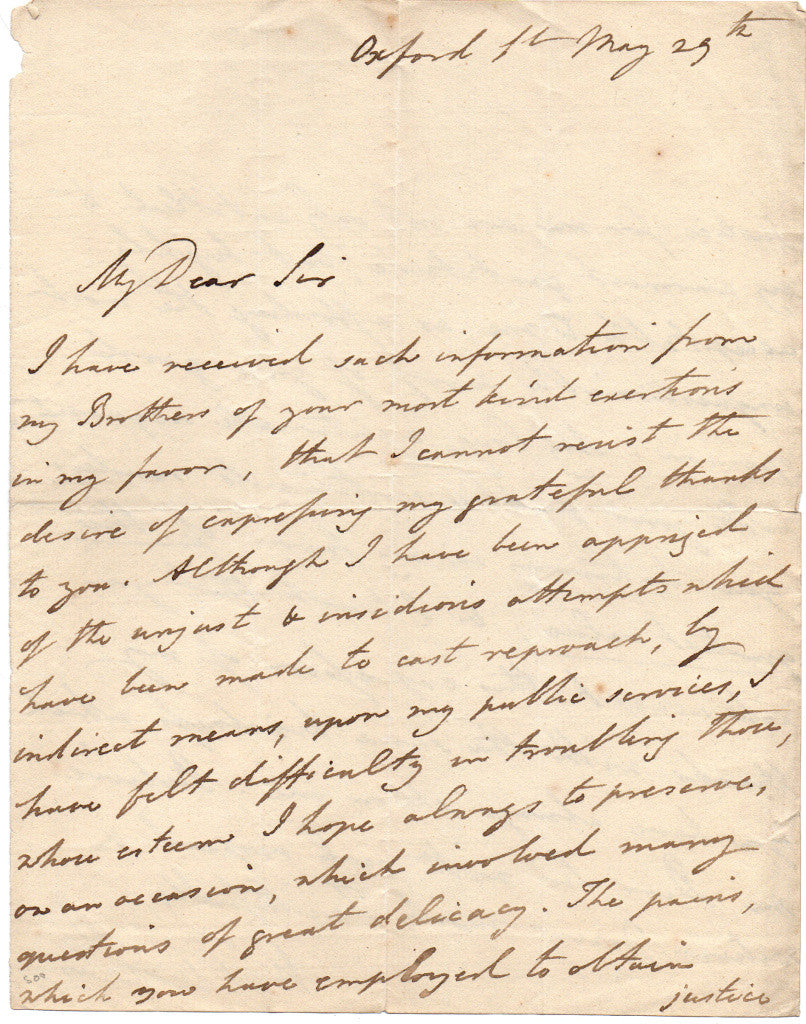 Oxford St May 29th
My Dear Sir
I have received such information from
my Brothers of your most kind exertions
in my favor, that I cannot resist the
desire of expressing my grateful thanks
to you. Although I have been apprized
of the unjust & insidious attempts which
have been made to cast reproach, by
indirect means, upon my public services, I
have felt difficulty in troubling those,
whose esteem I hope always to preserve,
on an occasion, which involved many
questions of great delicacy. The pains,
which you have employed to obtain
justice